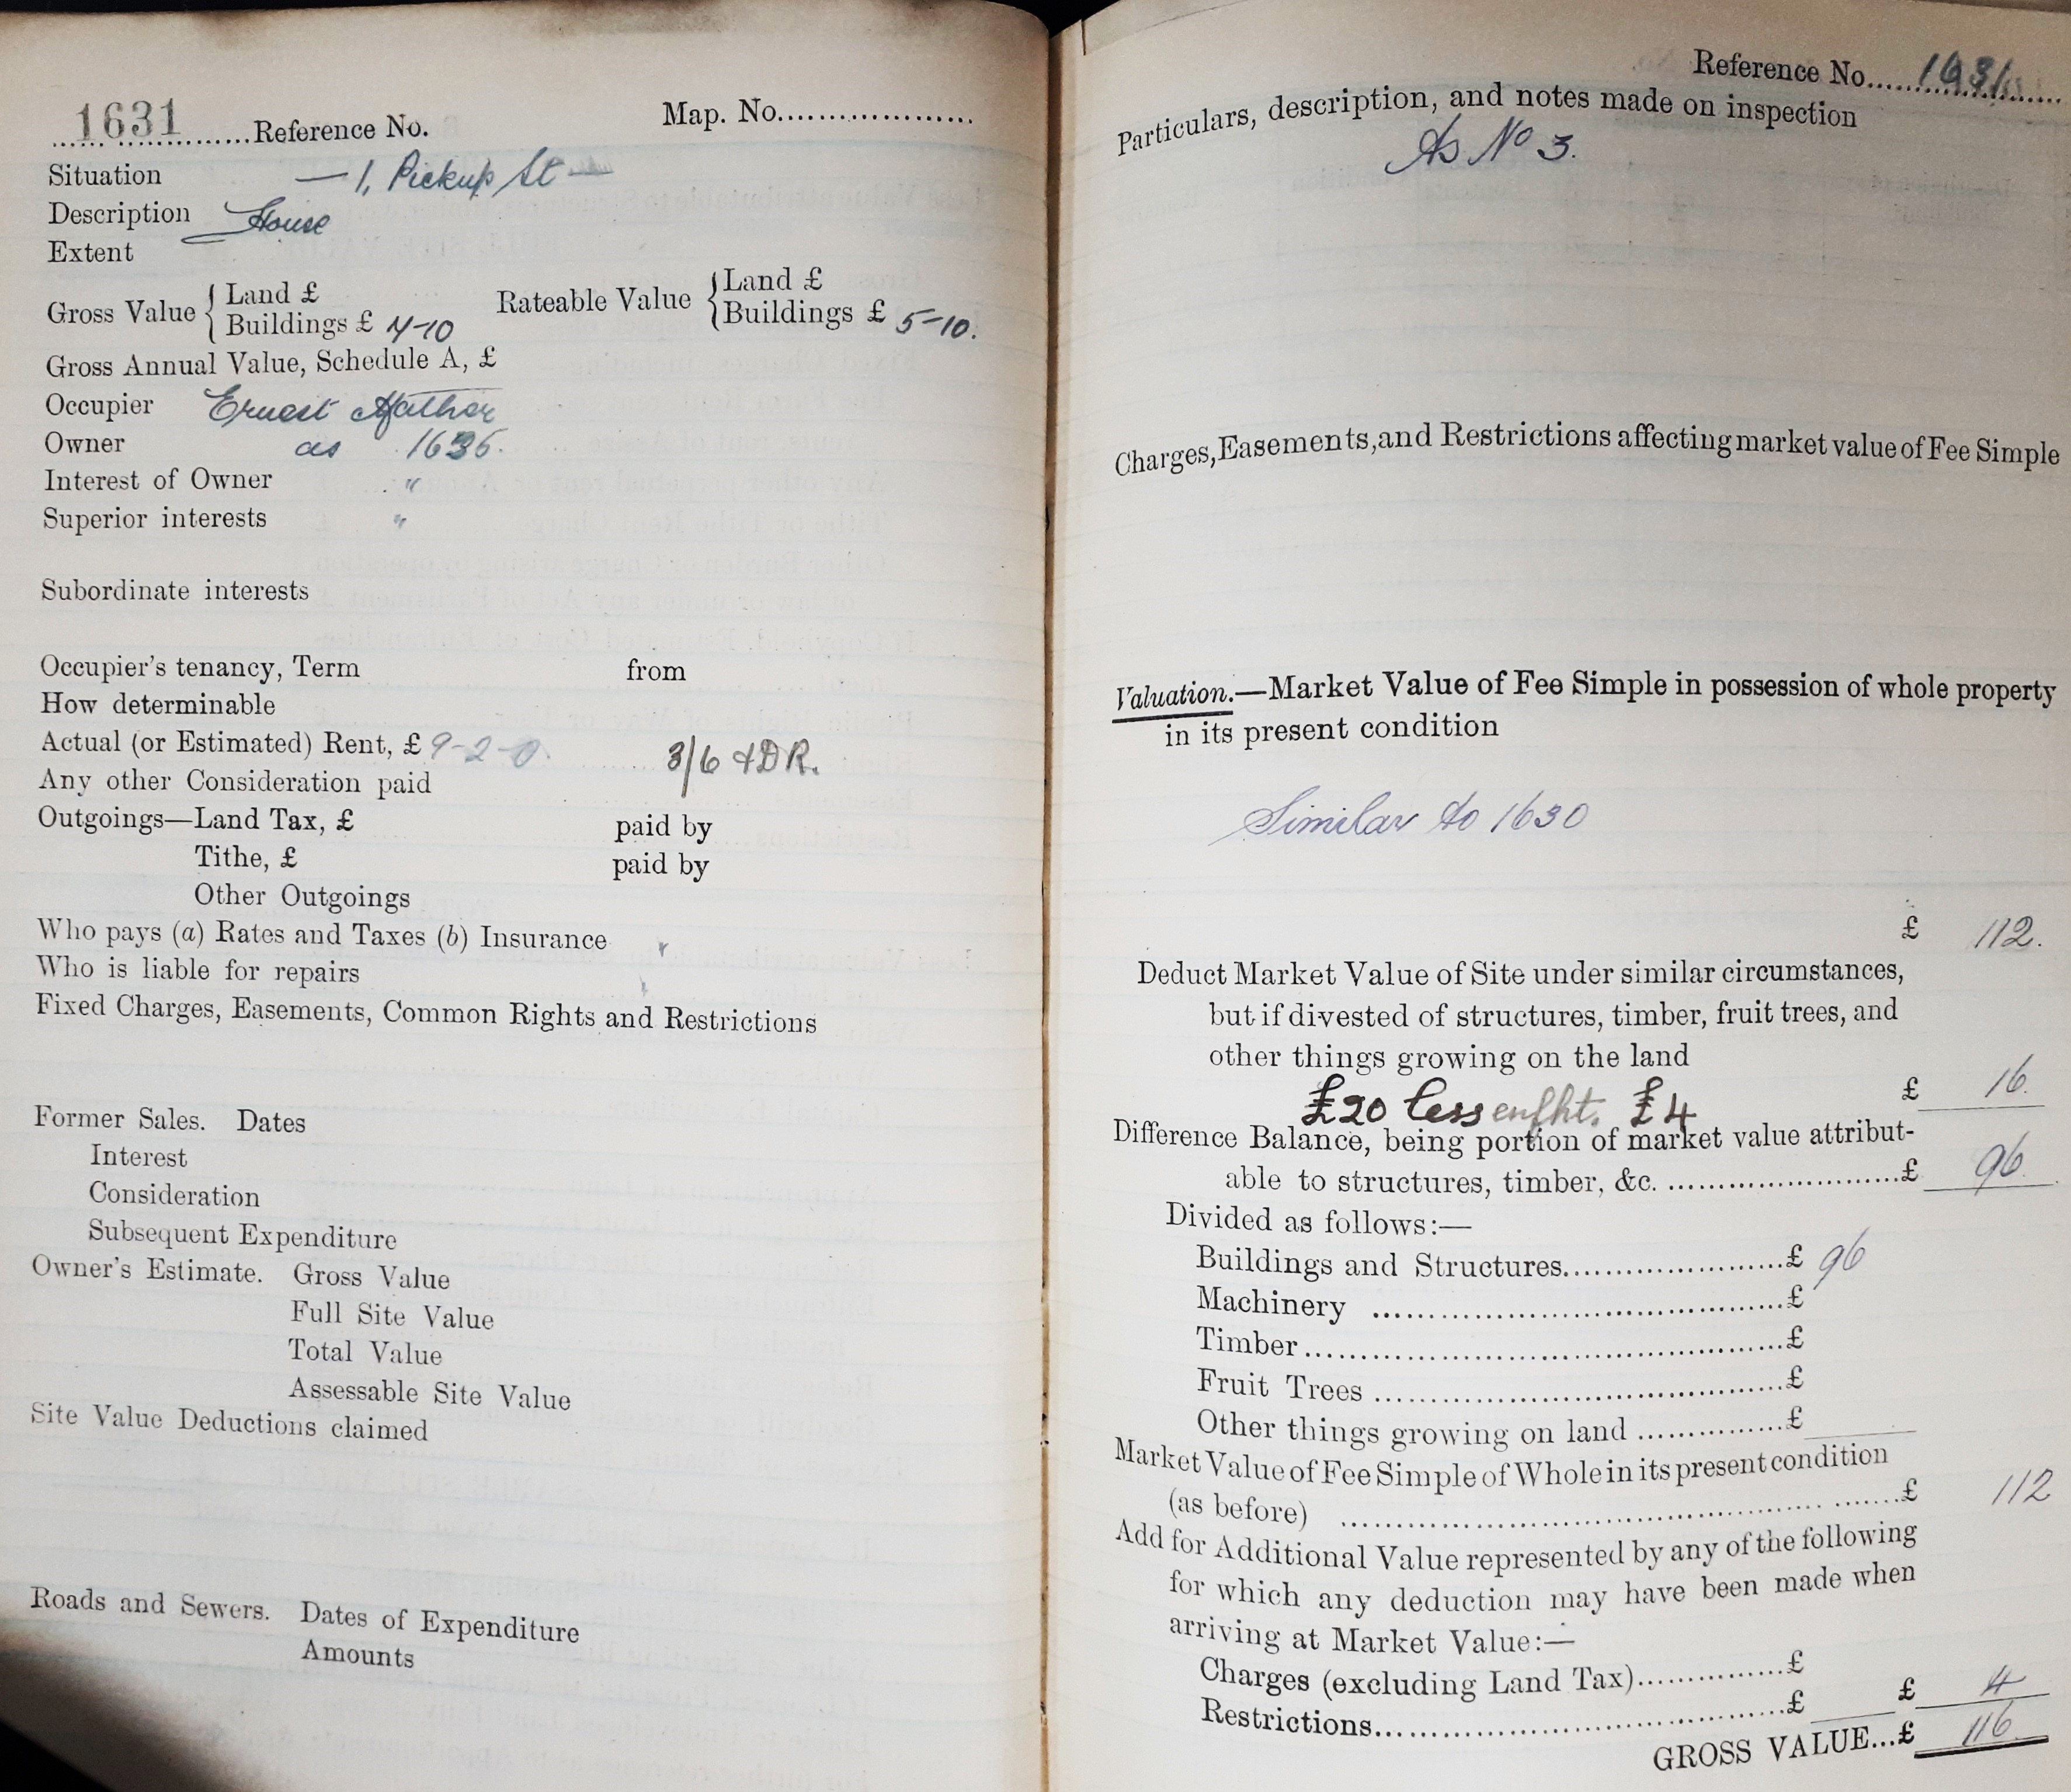 1631 ..........Reference No. Map. No....................
Situation — 1, Pickup St —
Description House
Extent
Gross Value { Land £ Rateable Value { Land £
Buildings £ 4-10 Buildings £ 5-10.
Gross Annual Value, Schedule A, £
Occupier Ernest Mather
Owner as 1636.
Interest of Owner "
Superior interests "
Subordinate interests
Occupier's tenancy, Term from
How determinable
Actual (or Estimated) Rent, £ 9-2-0. 3/6 & DR.
Any other Consideration paid
Outgoings—Land Tax, £ paid by
Tithe, £ paid by
Other Outgoings
Who pays (a) Rates and Taxes (b) Insurance
Who is liable for repairs
Fixed Charges, Easements, Common Rights and Restrictions
Former Sales. Dates
Interest
Consideration
Subsequent Expenditure
Owner's Estimate. Gross Value
Full Site Value
Total Value
Assessable Site Value
Site Value Deductions claimed
Roads and Sewers. Dates of Expenditure
Amounts
Reference No.....1631....
Particulars, description, and notes made on inspection
As No 3.
Charges, Easements, and Restrictions affecting market value of Fee Simple
Valuation.—Market Value of Fee Simple in possession of whole property
in its present condition
Similar to 1630
£ 112.
Deduct Market Value of Site under similar circumstances,
but if divested of structures, timber, fruit trees, and
other things growing on the land
£20 less enfht. £4 £ 16.
Difference Balance, being portion of market value attribut-
able to structures, timber, &c. ..........................£ 96.
Divided as follows:—
Buildings and Structures.......................£ 96
Machinery ..........................................£
Timber..................................................£
Fruit Trees ..........................................£
Other things growing on land ...............£
Market Value of Fee Simple of Whole in its present condition
(as before) ..................................................£ 112
Add for Additional Value represented by any of the following
for which any deduction may have been made when
arriving at Market Value:—
Charges (excluding Land Tax)...............£
Restrictions..........................................£ £ 4
GROSS VALUE...£ 116.